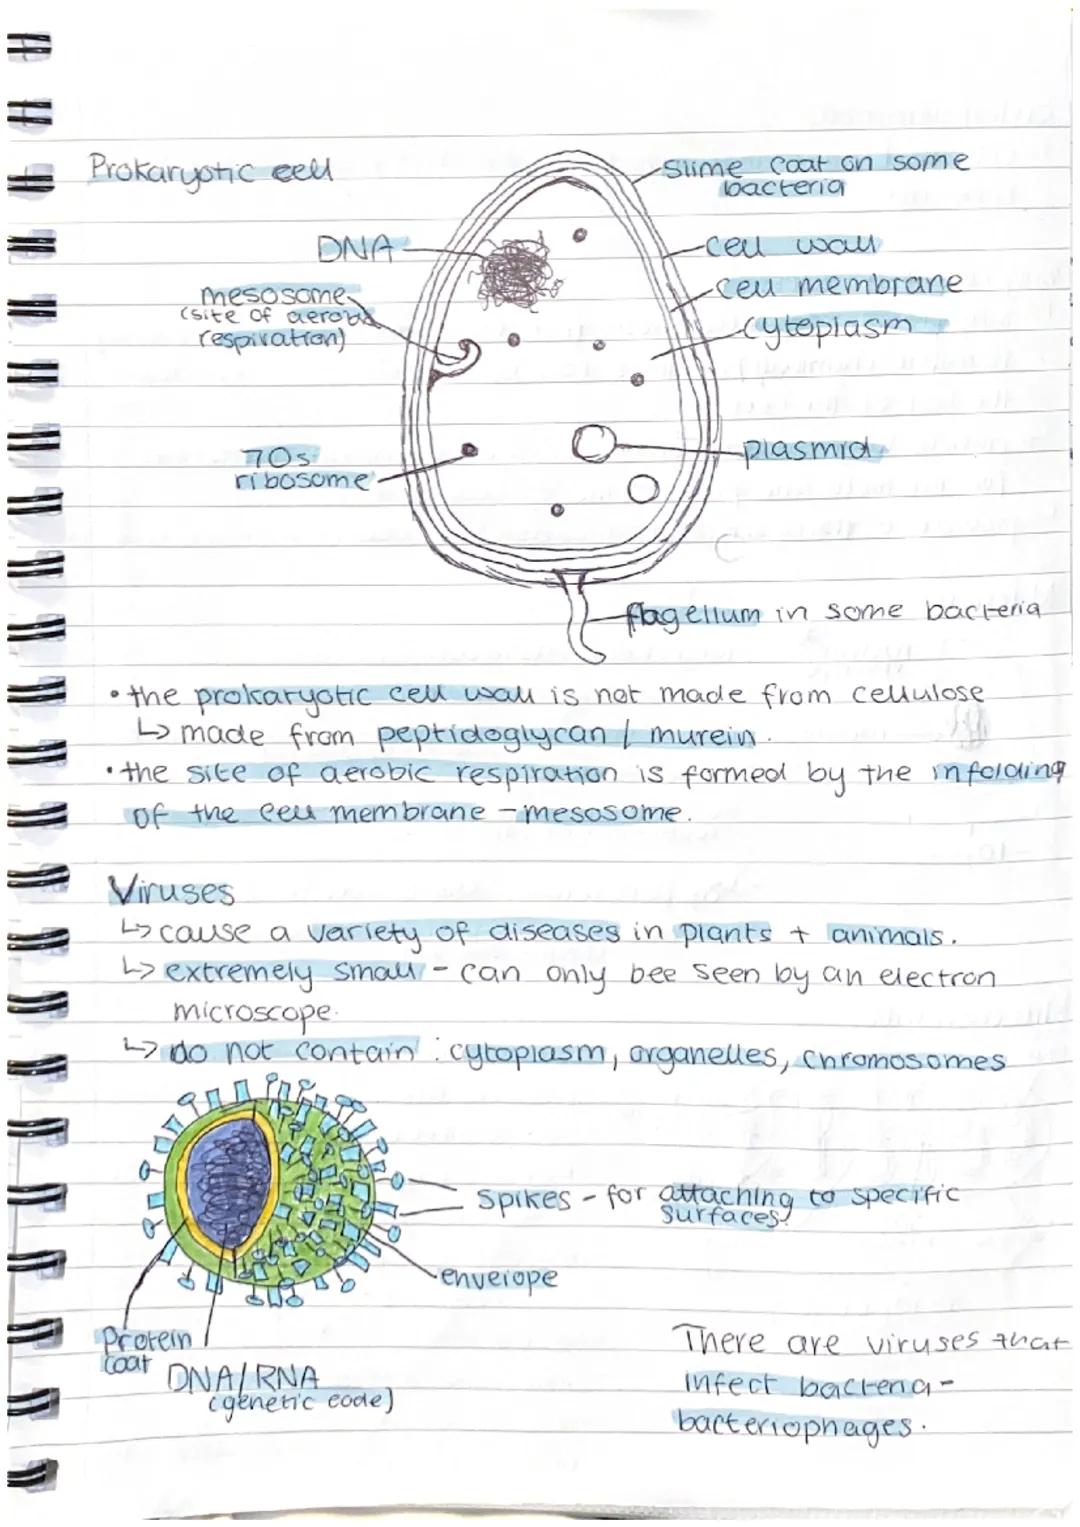 Prokaryotic cell
Slime coat on some
bacteria
DNA
cell wall
mesosome
(site of aerobic
respiration)
cell membrane
cytoplasm
70s
ribosome
plasmid
flagellum in some bacteria
• the prokaryotic cell wall is not made from cellulose
↳ made from peptidoglycan / murein.
• the site of aerobic respiration is formed by the infolding
of the cell membrane - mesosome.
Viruses
↳ cause a variety of diseases in plants + animals.
↳ extremely small - can only bee seen by an electron
microscope.
↳ do not contain : cytoplasm, organelles, chromosomes
Spikes - for attaching to specific
surfaces.
envelope
Protein
coat
DNA/RNA
(genetic code)
There are viruses that
infect bacteria -
bacteriophages.